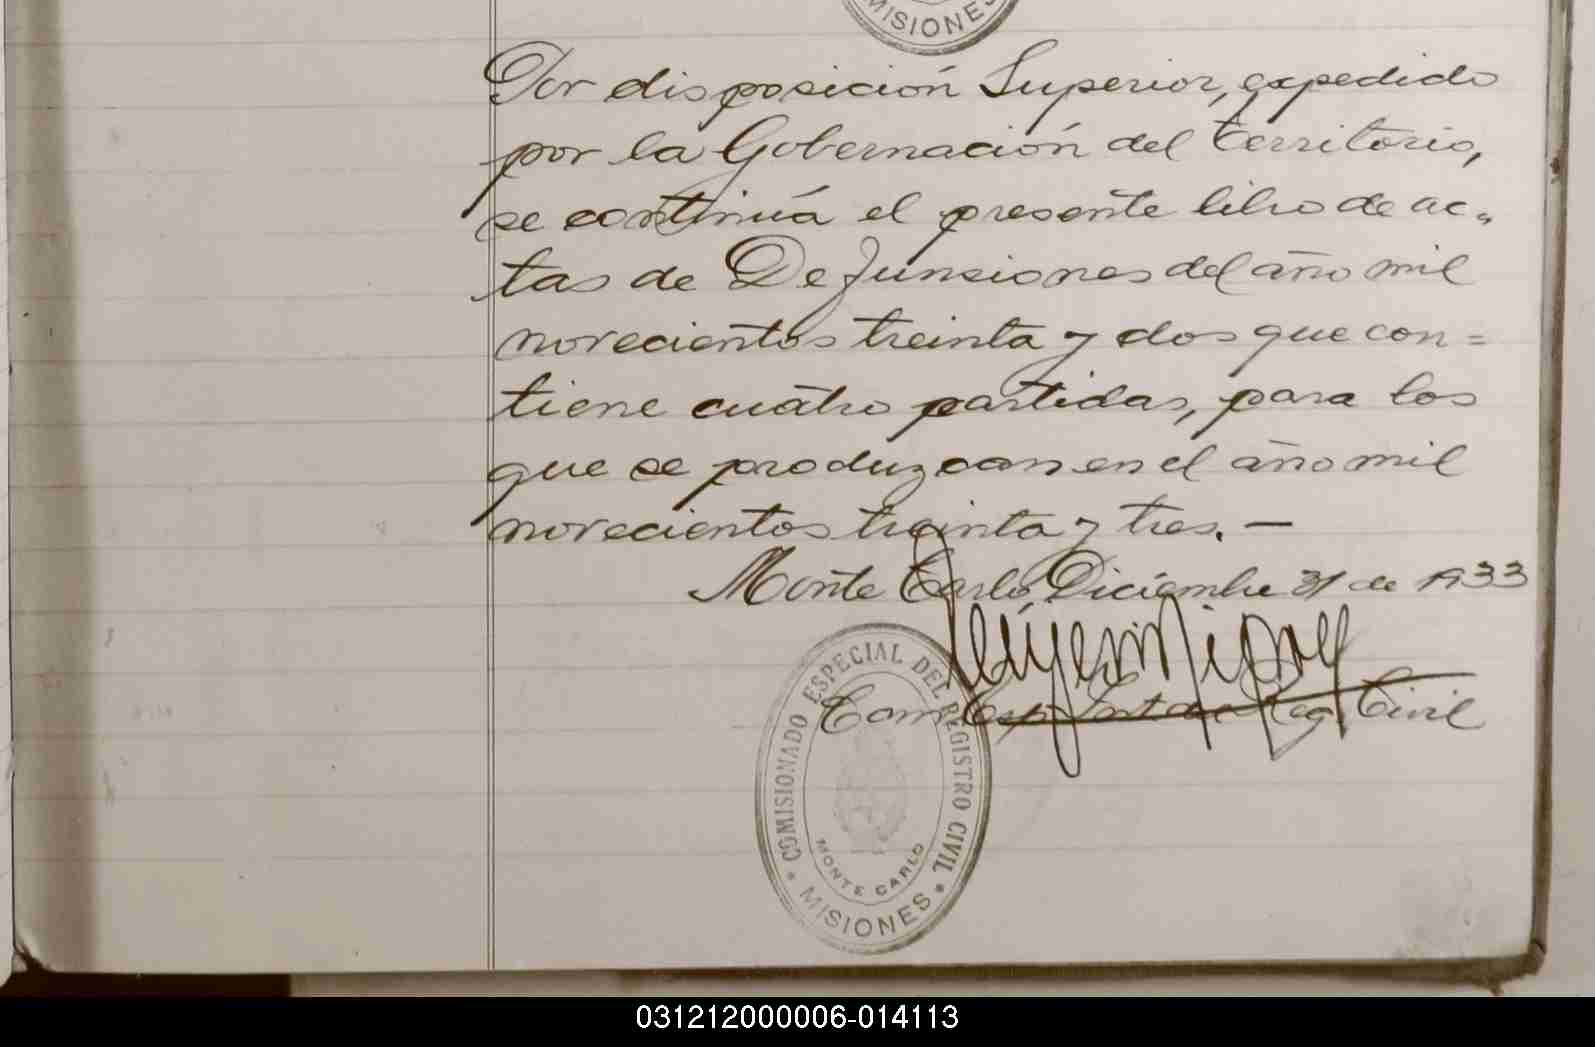 MISIONES
Por disposición Superior, expedido
por la Gobernación del territorio,
se continúa el presente libro de ac„
tas de Defunsiones del año mil
novecientos treinta y dos que con=
tiene cuatro partidas, para los
que se produzcan en el año mil
novecientos treinta y tres. —
Monte Carlo Diciembre 31 de 1933
Com Esp Reg. Civil
COMISIONADO ESPECIAL DEL REGISTRO CIVIL
MONTE CARLO
MISIONES
031212000006-014113